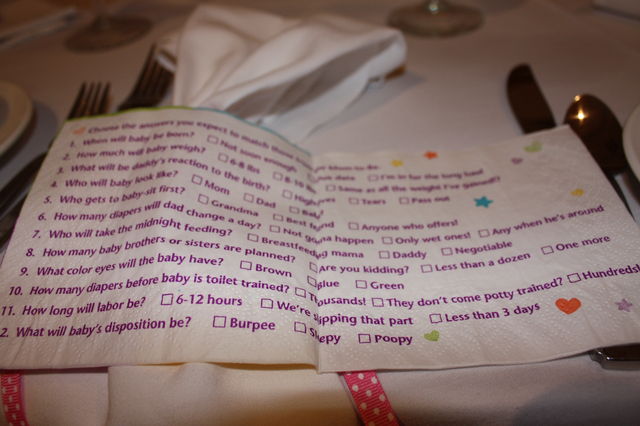 Choose the answers you expect to match those
1. When will baby be born? □ Not soon enough □ due date □ I'm in for the long haul
2. How much will baby weigh? □ 6-8 lbs □ 8-10 □ Same as all the weight I've gained?
3. What will be daddy's reaction to the birth? □ □ Tears □ Pass out
4. Who will baby look like? □ Mom □ Dad □
5. Who gets to baby-sit first? □ Grandma □ Best □ Anyone who offers!
6. How many diapers will dad change a day? □ Not gonna happen □ Only wet ones! □ Any when he's around
7. Who will take the midnight feeding? □ Breastfeeding mama □ Daddy □ Negotiable
8. How many baby brothers or sisters are planned? □ Are you kidding? □ Less than a dozen □ One more
9. What color eyes will the baby have? □ Brown □ Blue □ Green
10. How many diapers before baby is toilet trained? □ Thousands! □ They don't come potty trained? □ Hundreds!
11. How long will labor be? □ 6-12 hours □ We're skipping that part □ Less than 3 days
2. What will baby's disposition be? □ Burpee □ Sleepy □ Poopy